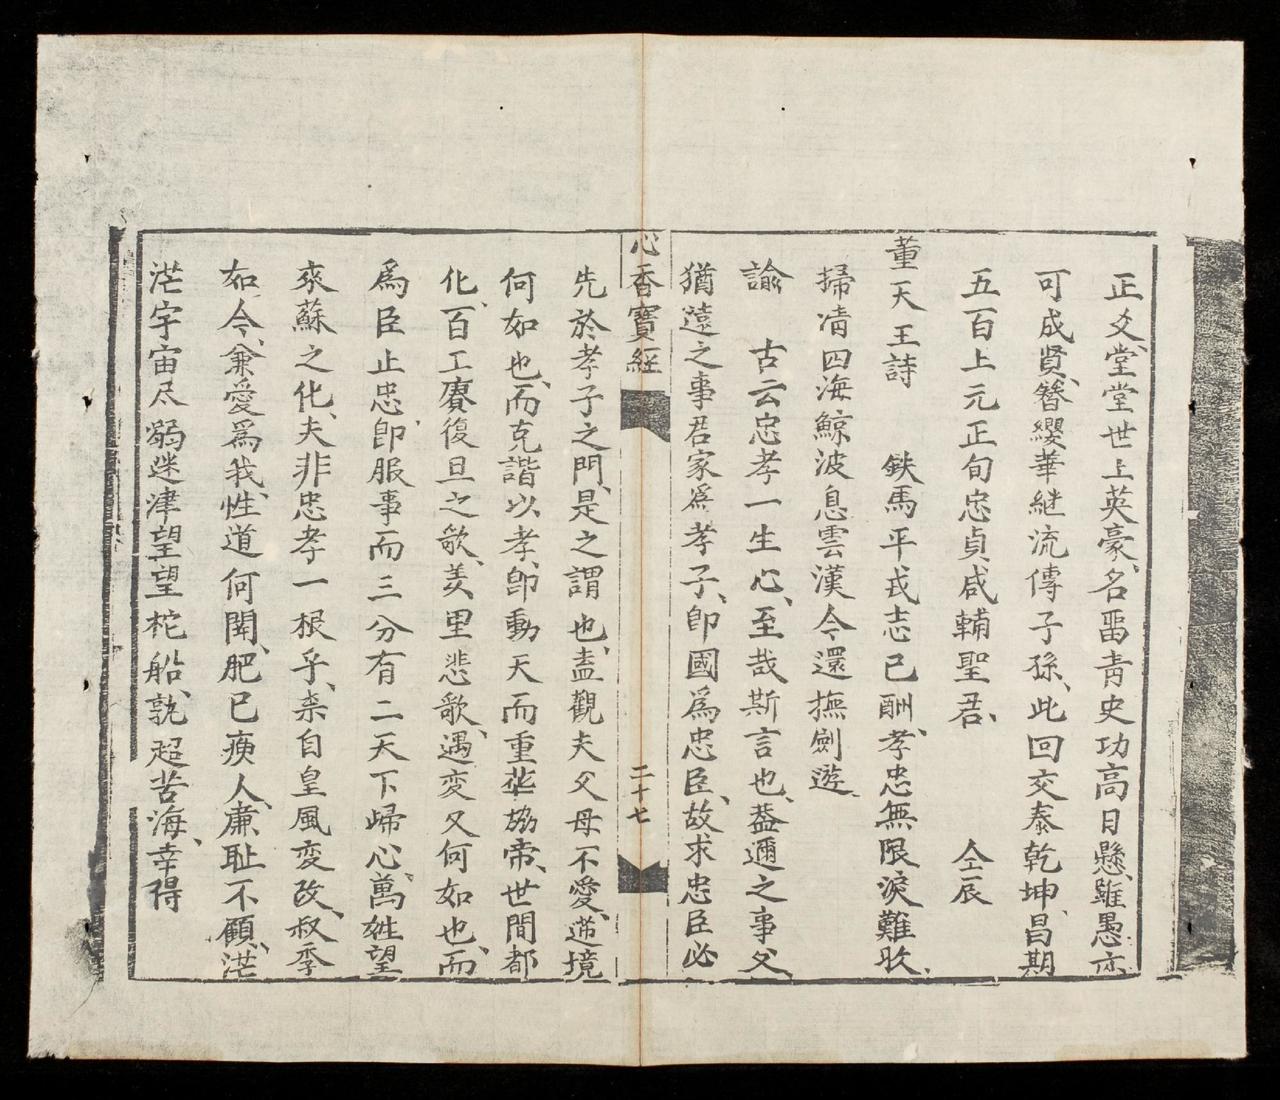 正爻堂堂世上英豪名畱青史功高日懸雖愚亦
可成賢簪纓華継流傳子孫此回交泰乾坤昌期
五百上元正旬忠貞咸輔聖君 仝辰
董天王詩 鉄馬平戎志已酬孝忠無限淚難收
掃清四海鯨波息雲漢今還撫劍遊
諭 古云忠孝一生心至哉斯言也葢邇之事父
猶遠之事君家爲孝子卽國爲忠臣故求忠臣必
心香寶經 二十七
先於孝子之門是之謂也盍觀夫父母不愛遭境
何如也而克諧以孝卽動天而重華協帝世間都
化百工賡復旦之歌羑里悲歌遇変又何如也而
爲臣止忠卽服事而三分有二天下歸心萬姓望
來蘇之化夫非忠孝一根乎柰自皇風变改叔季
如今兼愛爲我性道何聞肥已瘐人㢘耻不顧茫
茫宇宙尽溺迷津望望柁船孰超苦海幸得